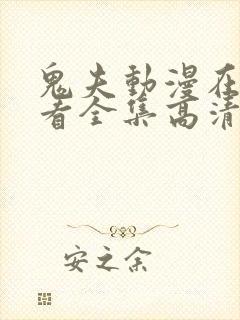 鬼夫動漫在
看全集高清
安之余